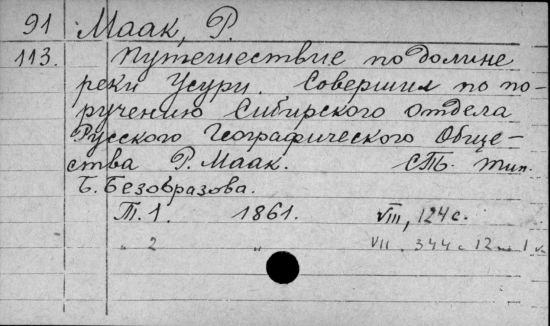 91 Маак, Р.
113. Путешествие по долине
реки Усури. Совершил по по-
ручению Сибирского отдела
Русского Географического Обще-
ства Р. Маак. СПб. тип.
Б. Безобразова.
Т. 1. 1861. VIII, 124 с.
„ 2 „ VII. 344 с 12 1